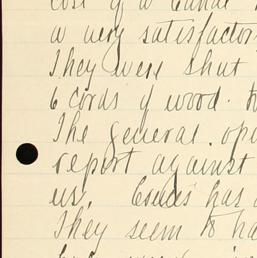 cost of a Canal
a very satisfactor
They were shut
6 cords of wood.
The general opi
report against
us. has
They seem to ha